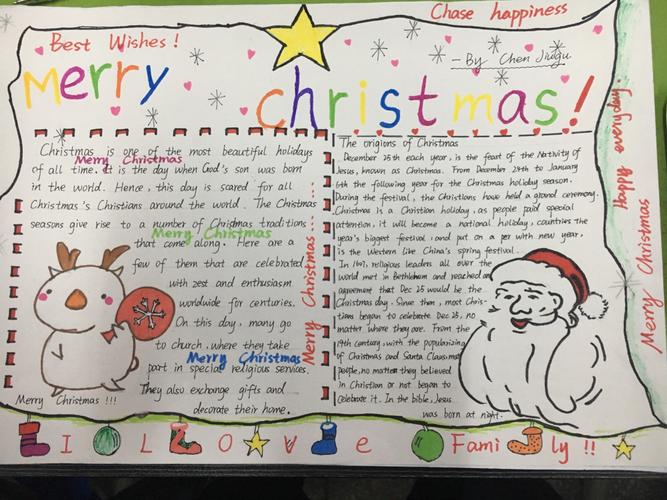 Chase happiness
Best Wishes!
— By Chen
Merry christmas!
Christmas is one of the most beautiful holidays
Merry Christmas
of all time. It is the day when God's son was born
in the world. Hence, this day is scared for all
Christmas's Christians around the world. The Christmas
seasons give rise to a number of Chridmas traditions
Merry Christmas
that come along. Here are a
few of them that are celebrated
with zest and enthusiasm
worldwide for centuries.
On this day, many go
to church, where they take
Merry Christmas
part in special religious services.
They also exchange gifts and
decorate their home.
Merry Christmas !!!
Merry Christmas ... Merry Christmas ......
The origions of Christmas
December 25th each year, is the feart of the Nativity of
Jesus, known as Christmas. From December 24th to January
6th the following year for the Christmas holiday season.
During the festival, the Christians have held a grand ceremony.
Christmas is a Christian holiday, as people paid special
attention, it will become a national holiday, countries the
year's biggest festival, and put on a per with new year,
is the Western like China's spring festival.
In religious leaders all over the
world met in Bethleham and reached an
agreement that Dec 25 would be the
Christmas day. Since then, most Chris-
tians began to celebrate Dec 25, no
matter where they are. From the
19th century, with the popularizing
of Christmas and Santa Claus
people, no matter they believed
in Christian or not began to
celebrate it. In the bible, Jesus
was born at night.
Happy everyday.
Merry Christmas
I LOVe Family !!